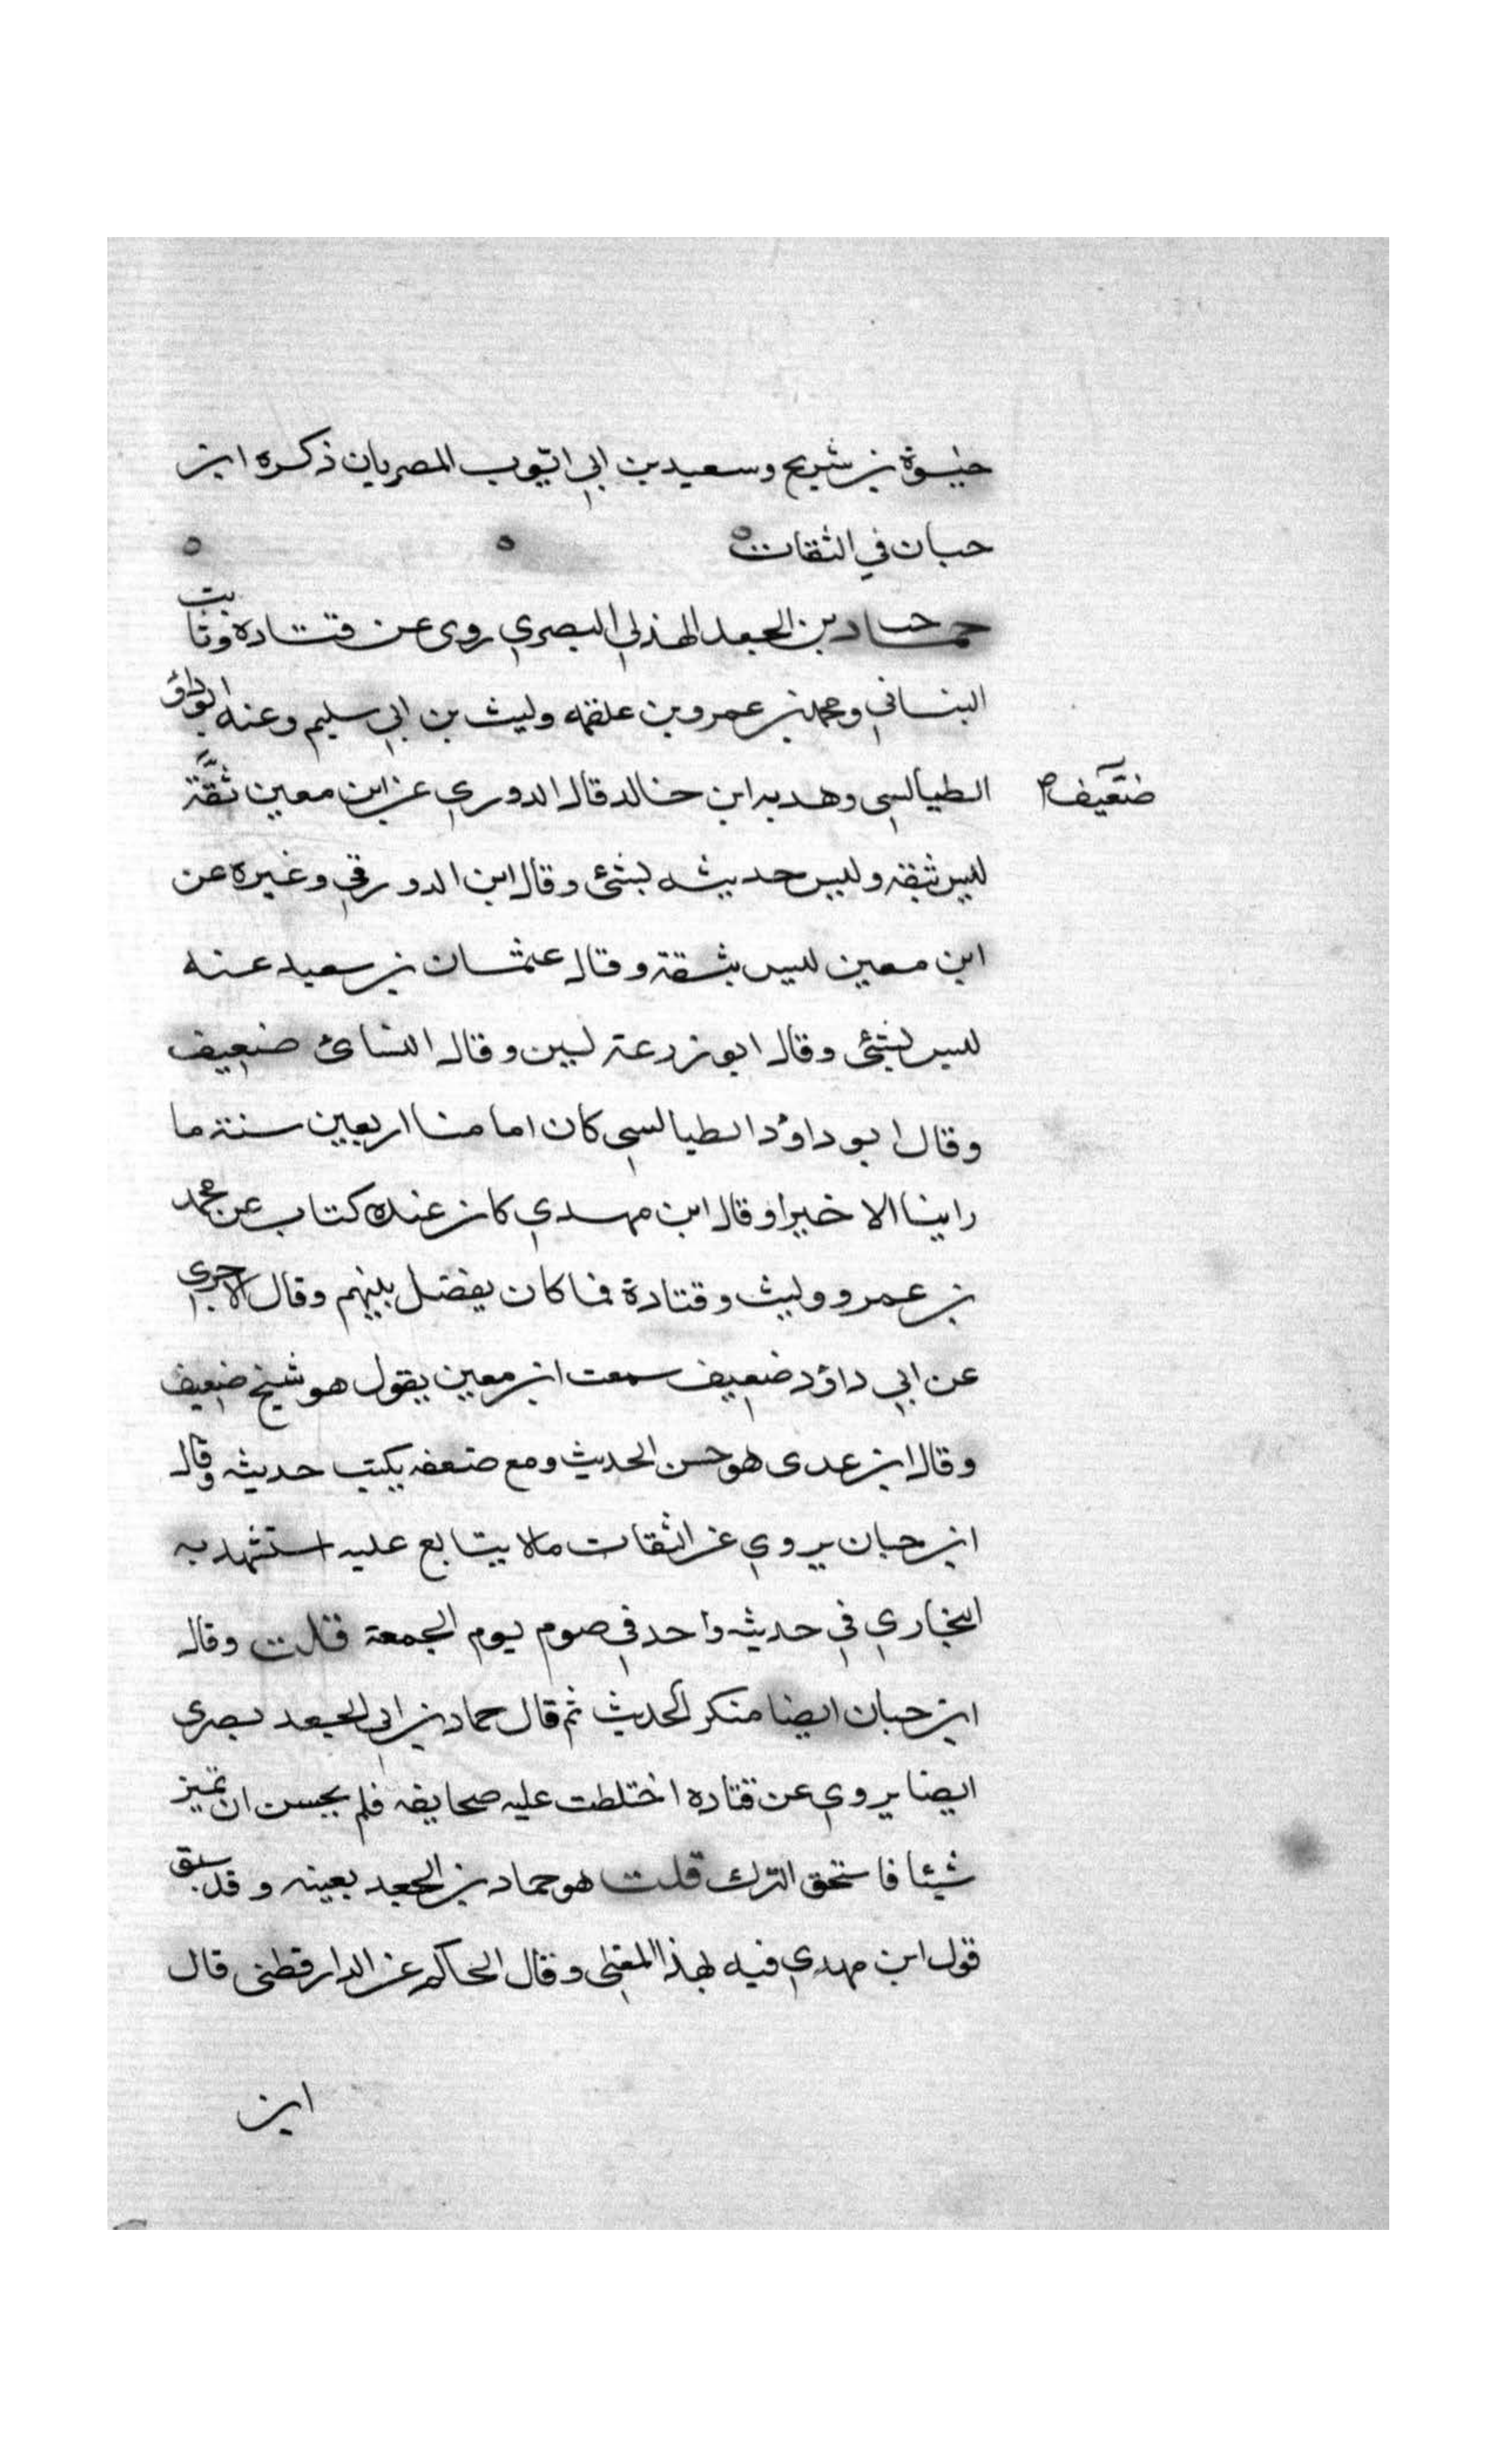 حيوة بن شريح وسعيد بن ابي ايوب المصريان ذكره ابن
حبان في الثقات
حماد بن الجعد الهذلي البصري روى عن قتاده وثابت
البناني ومحمد بن عمرو بن علقمه وليث بن ابي سليم وعنه ابو داؤد
الطيالسي وهدبه ابن خالد قال الدوري عن ابن معين ثقة
ضعيف
ليس بثقة وليس حديثه بشئ وقال ابن الدورقي وغيره عن
ابن معين ليس بثقة وقال عثمان بن سعيد عنه
ليس بشئ وقال ابو زرعة لين وقال النسائ ضعيف
وقال ابو داؤد الطيالسي كان امامنا اربعين سنة ما
راينا الا خيرا وقال ابن مهدي كان عنده كتاب عن محمد
بن عمرو وليث وقتادة فما كان يفضل بينهم وقال الاجري
عن ابي داؤد ضعيف سمعت ابن معين يقول هو شيخ ضعيف
وقال ابن عدى هو حسن الحديث ومع ضعفه يكتب حديثه وقال
ابن حبان يروي عن الثقات مالا يتابع عليه استشهد به
البخاري في حديث واحد في صوم يوم الجمعة قلت وقال
ابن حبان ايضا منكر الحديث ثم قال حماد بن ابي الجعد بصرى
ايضا يروي عن قتاده اختلطت عليه صحايفه فلم يحسن ان تميز
شيئا فاستحق الترك قلت هو حماد بن الجعد بعينه وقد سبق
قول ابن مهدي فيه بهذا المعنى وقال الحاكم عن الدارقطنى قال
ابن